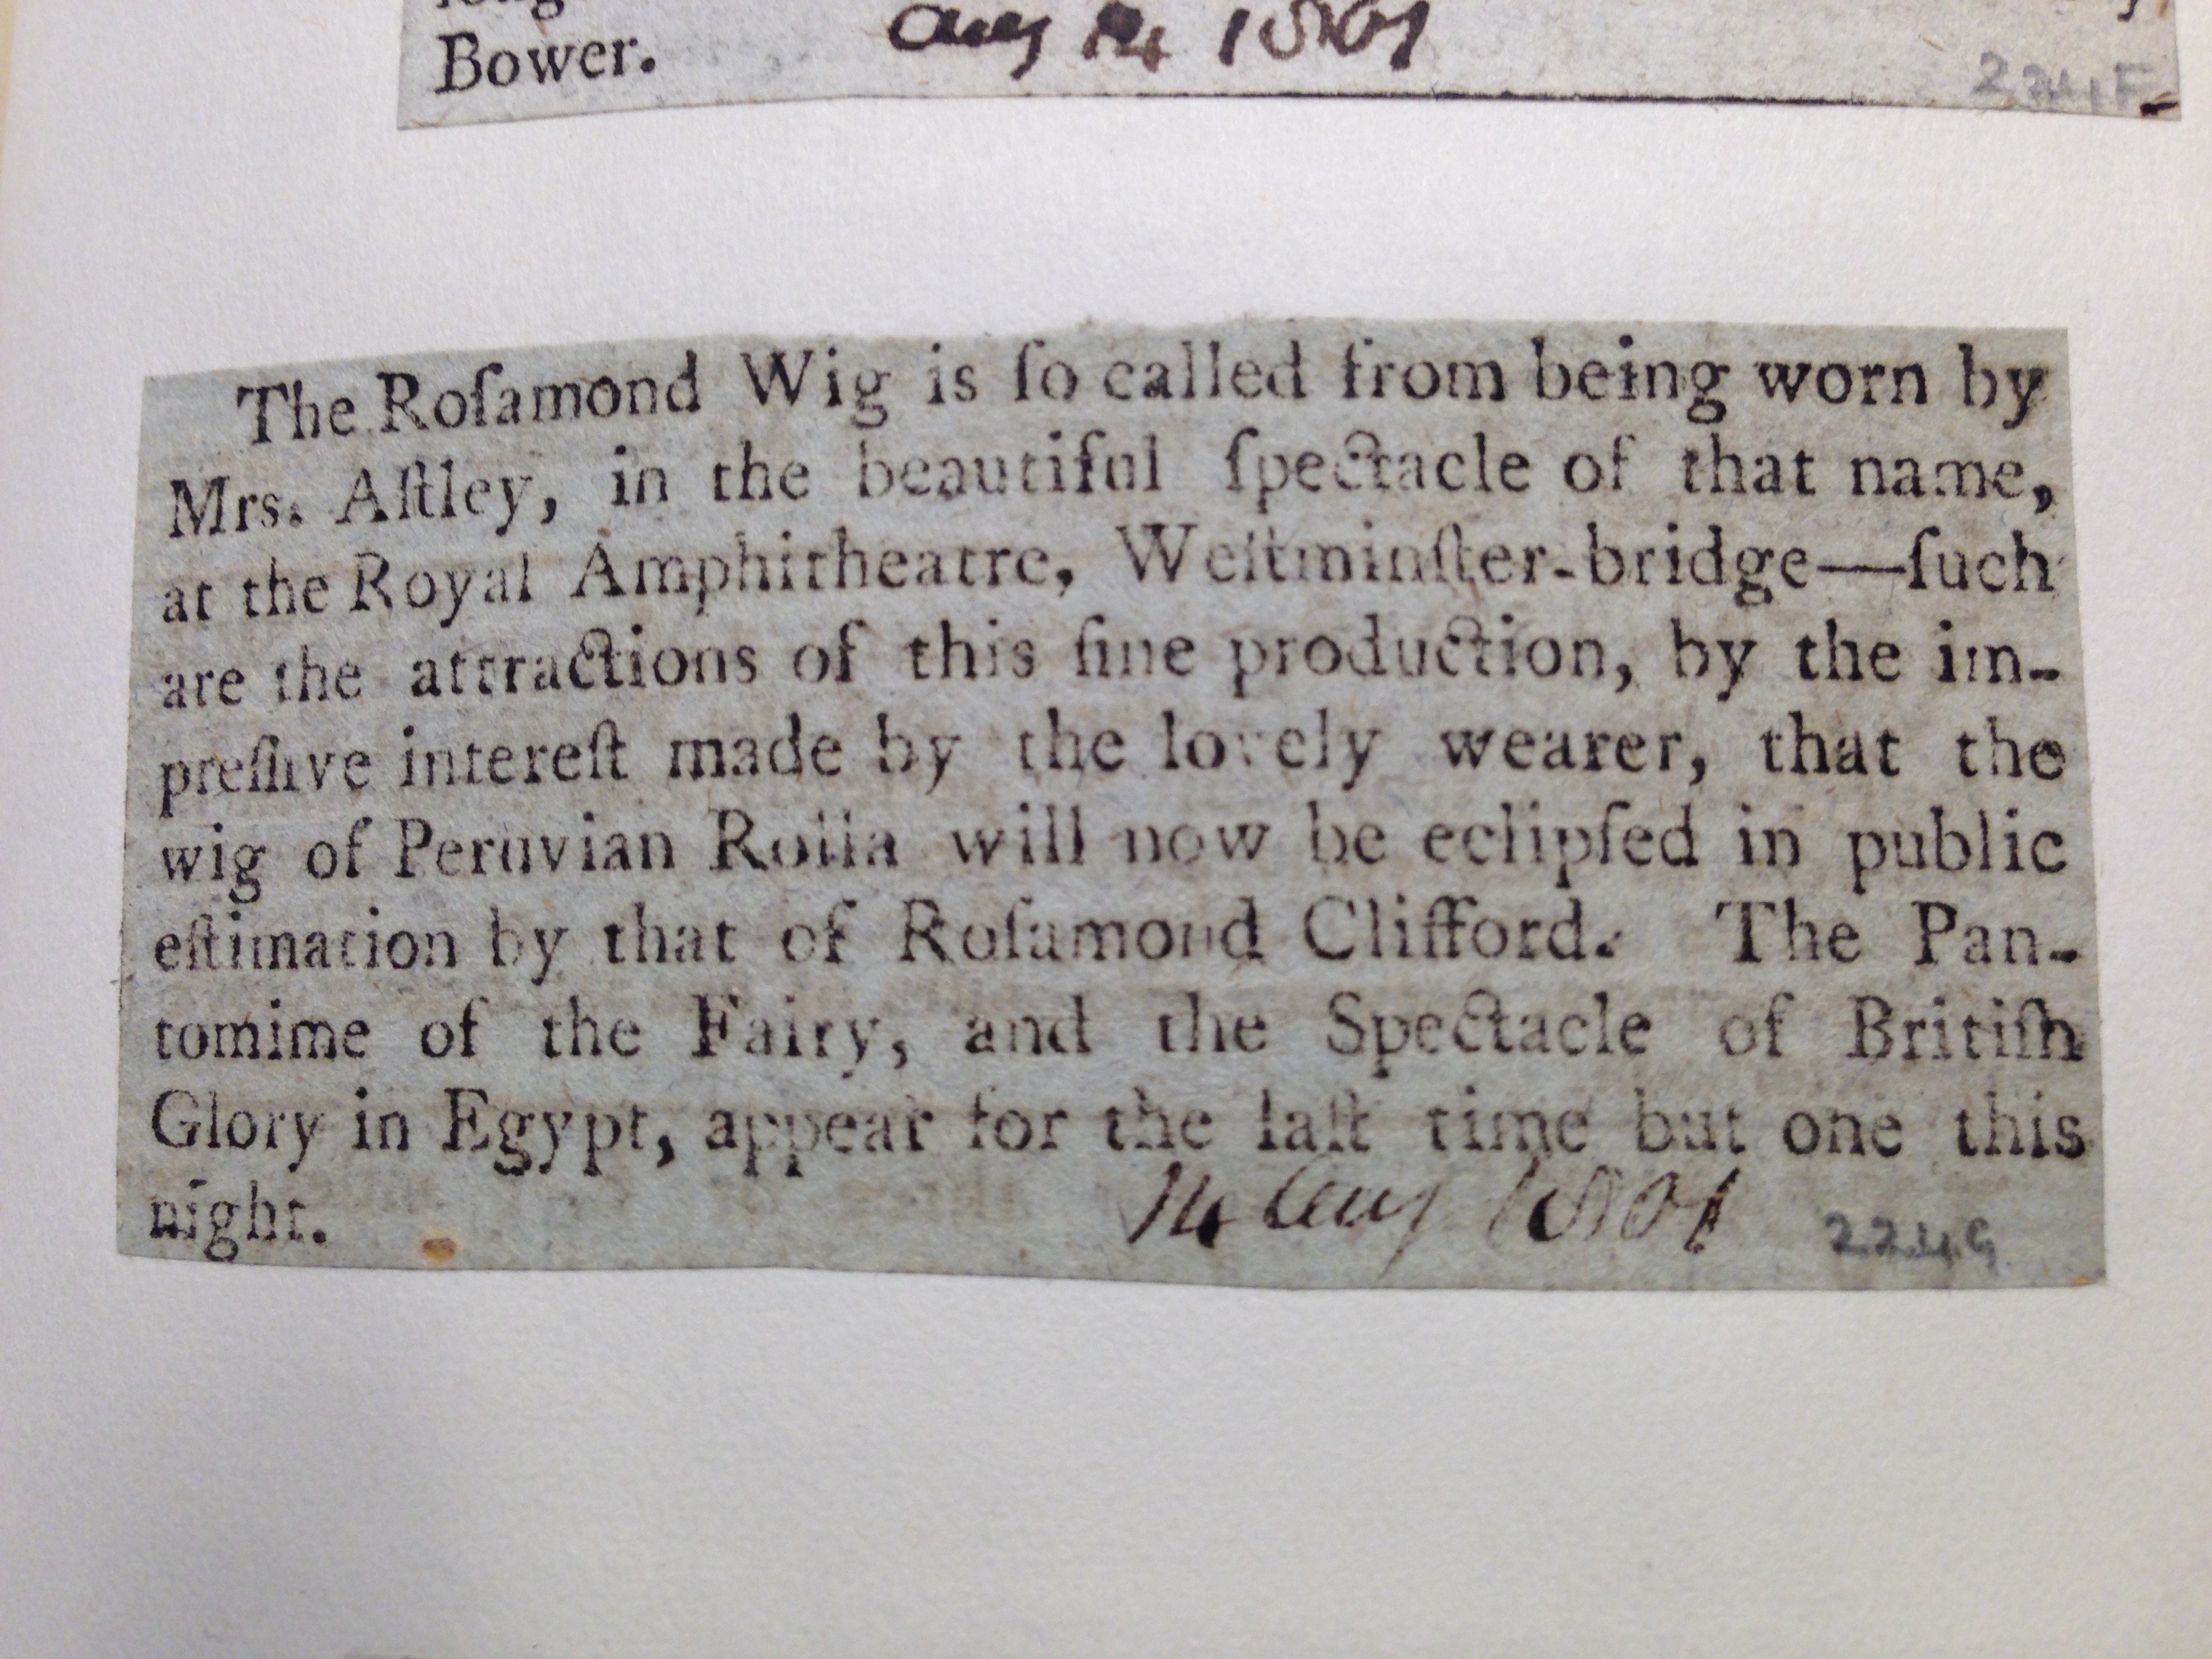 Bower. Aug 14 1801
The Roſamond Wig is ſo called from being worn by
Mrs. Aſtley, in the beautiful ſpectacle of that name,
at the Royal Amphitheatre, Weſtminſter-bridge—ſuch
are the attractions of this fine production, by the im-
preſſive intereſt made by the lovely wearer, that the
wig of Peruvian Rolla will now be eclipſed in public
eſtimation by that of Roſamond Clifford. The Pan-
tomime of the Fairy, and the Spectacle of Britiſh
Glory in Egypt, appear for the laſt time but one this
night. 14 Aug 1801 224G